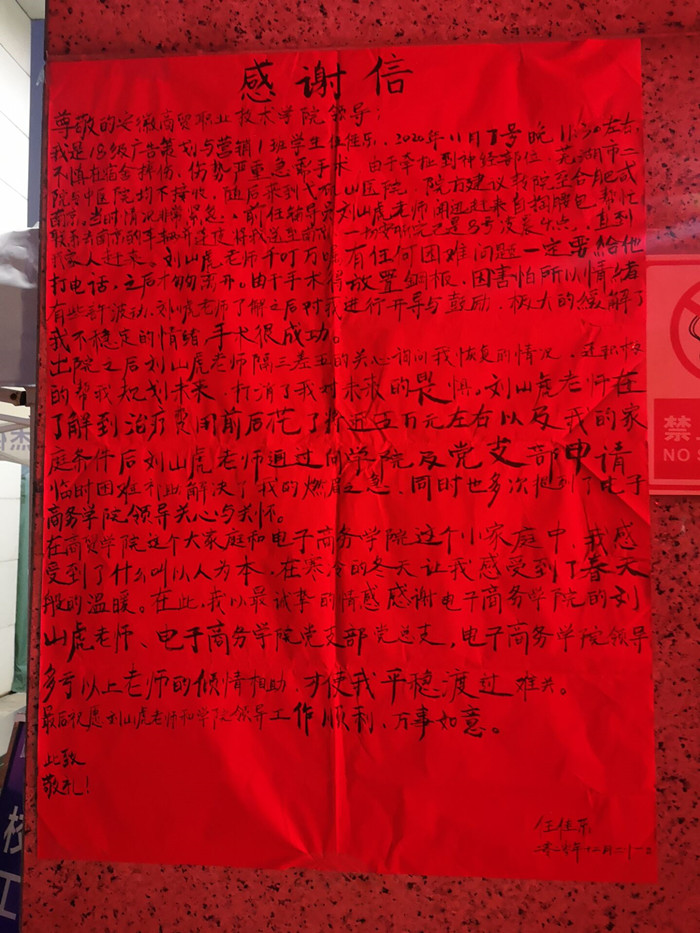 感谢信
尊敬的安徽商贸职业技术学院领导：
我是18级广告策划与营销1班学生任佳乐，2020年11月7号晚11:30左右
不慎在宿舍摔伤，伤势严重急需手术，由于牵扯到神经部位，芜湖市二
院与中医院均不接收，随后来到弋矶山医院，院方建议转院至合肥或
南京。当时情况非常紧急，前任辅导员刘山虎老师闻迅赶来自掏腰包帮忙
联系去南京的车辆并连夜将我送至南京，一切安顿完已是8号凌晨，直到
我家人赶来。刘山虎老师千叮万嘱有任何困难问题一定要给他
打电话，之后才匆匆离开。由于手术得放置钢板，因害怕所以情绪
有些许波动，刘山虎老师了解之后对我进行开导与鼓励，极大的缓解了
我不稳定的情绪，手术很成功。
出院之后刘山虎老师隔三差五的关心询问我恢复的情况，还积极
的帮我规划未来，打消了我对未来的畏惧。刘山虎老师在
了解到治疗费用前后花了将近五万元左右以及我的家
庭条件后刘山虎老师通过向学院及党支部申请
临时困难补助解决了我的燃眉之急，同时也多次得到了电子
商务学院领导关心与关怀。
在商贸学院这个大家庭和电子商务学院这个小家庭中，我感
受到了什么叫以人为本，在寒冷的冬天让我感受到了春天
般的温暖。在此，我以最诚挚的情感感谢电子商务学院的刘
山虎老师、电子商务学院党支部党总支，电子商务学院领导
多亏以上老师的倾情相助，才使我平稳渡过难关。
最后祝愿刘山虎老师和学院领导工作顺利，万事如意。
此致
敬礼！
任佳乐
二零二零年十二月二十一日
禁
NO S